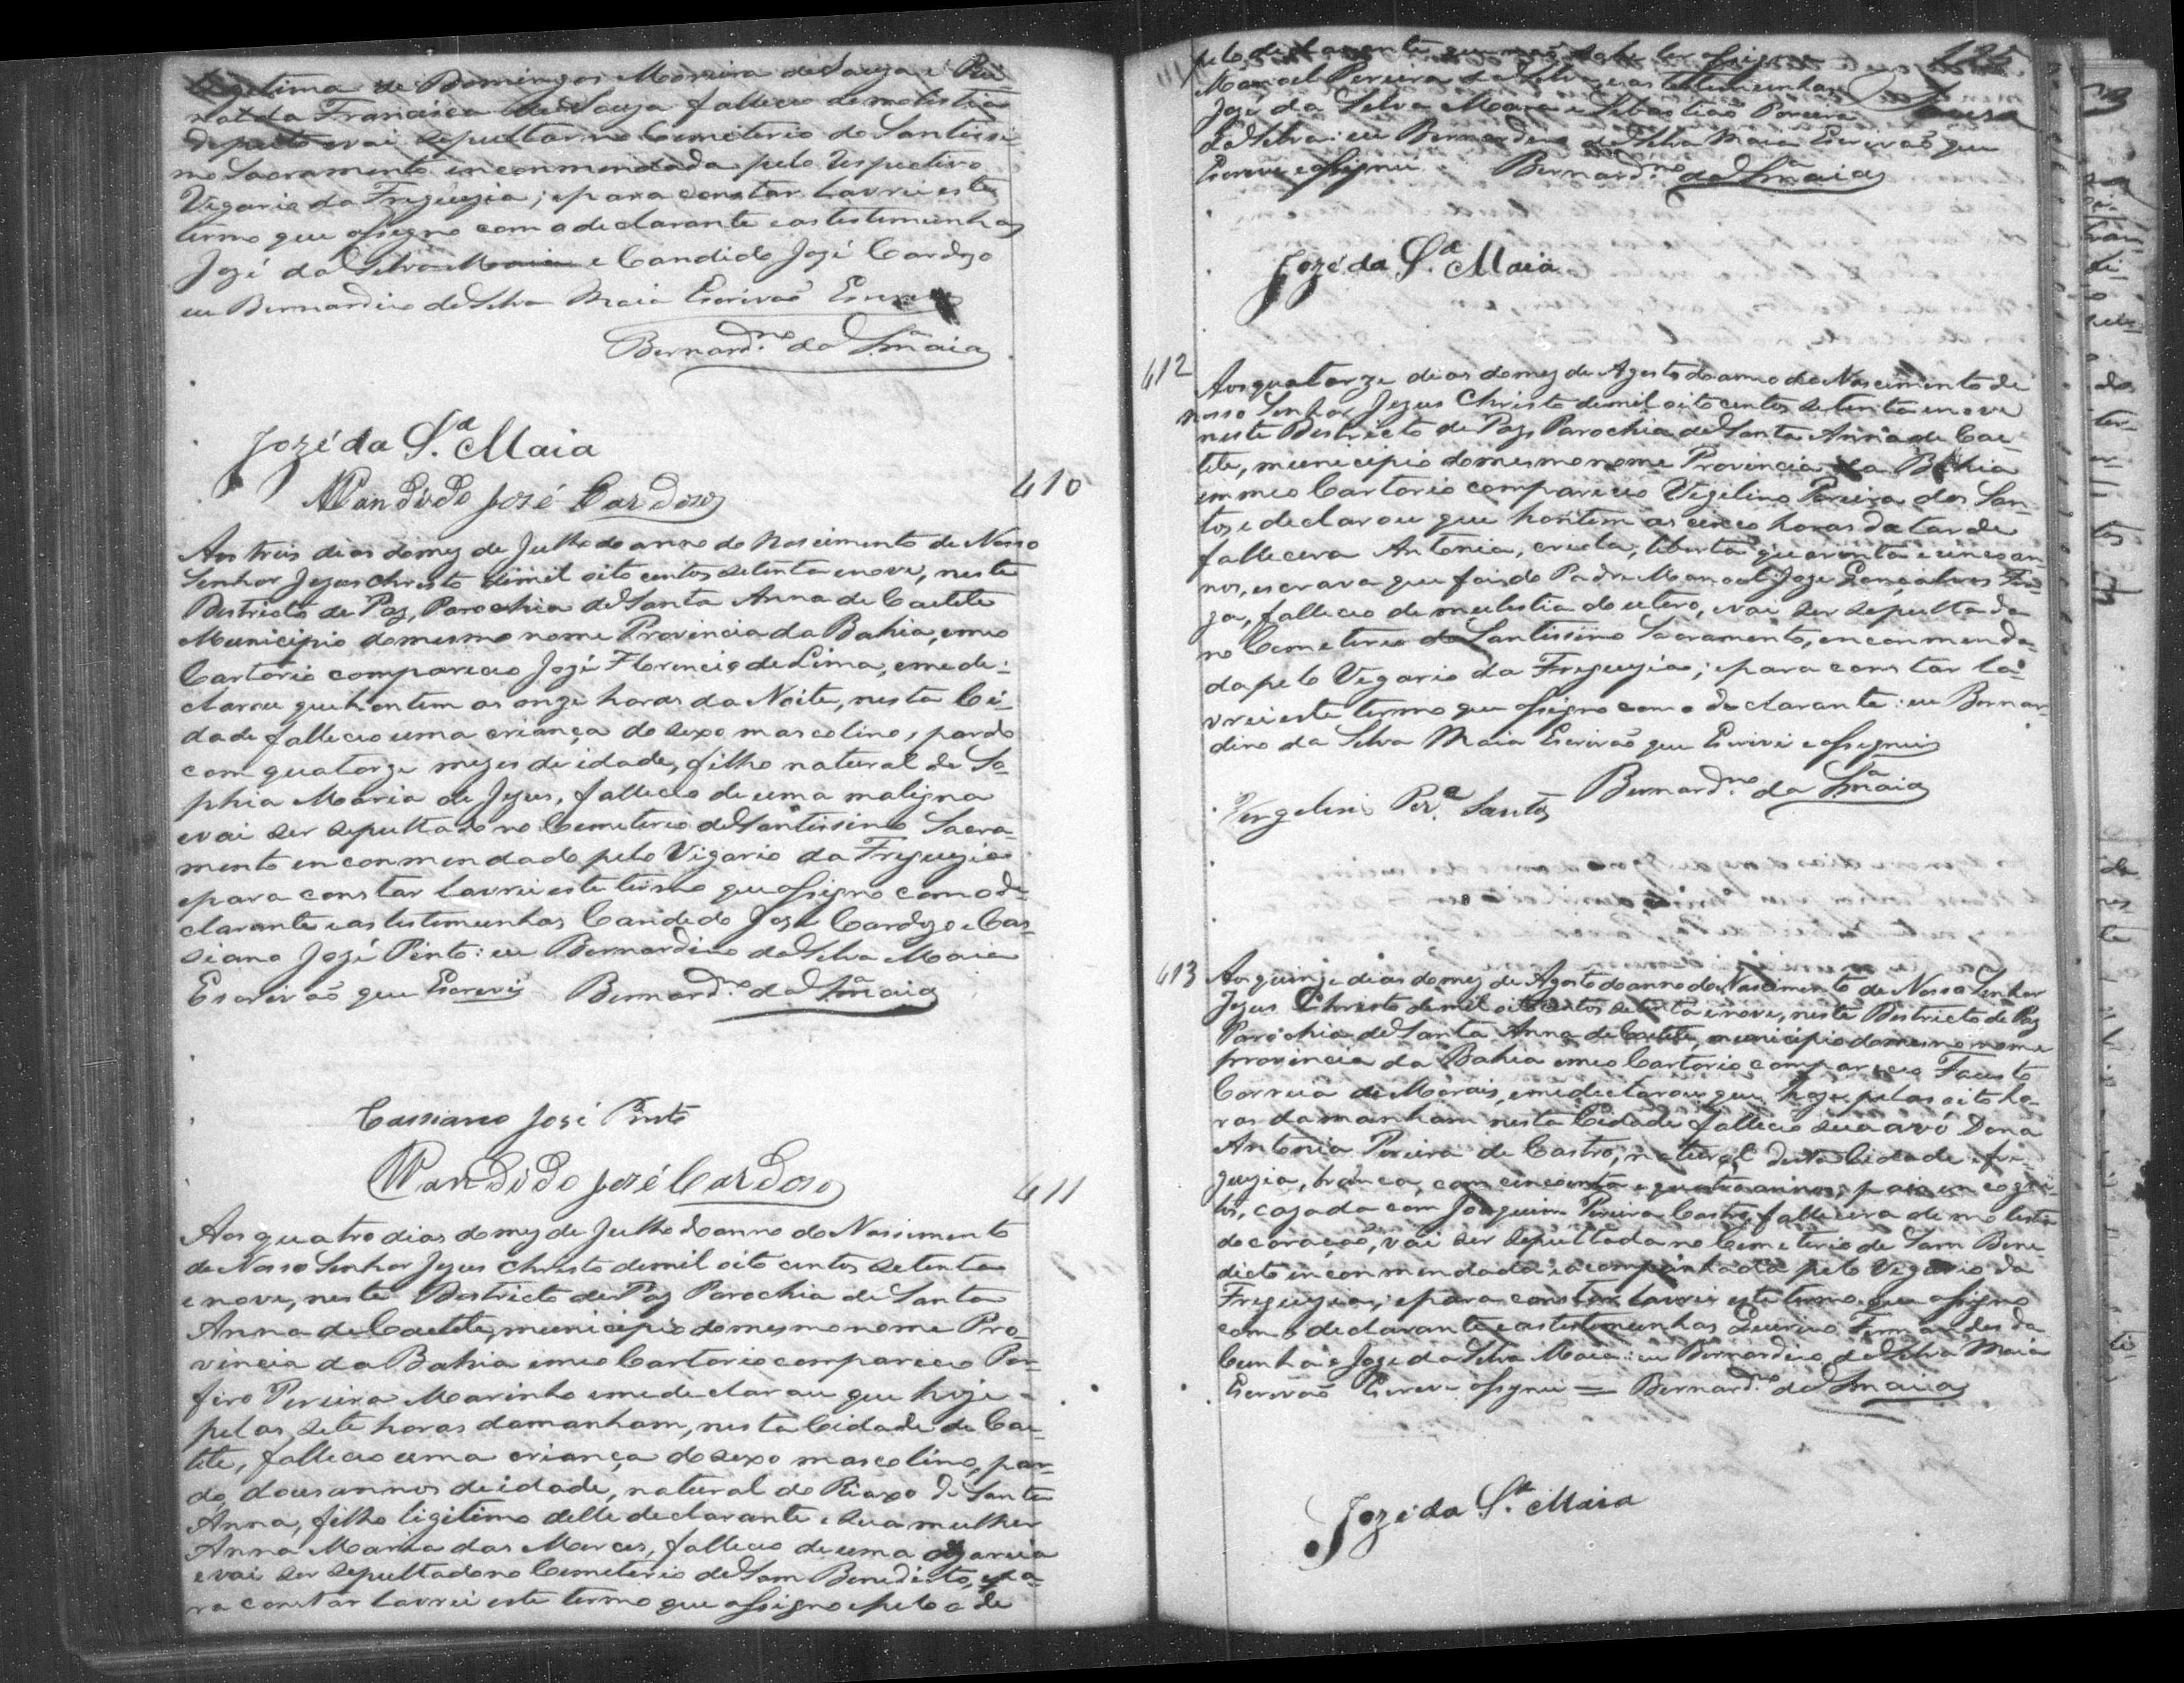 legitima de Domingos Moreira de Souza e
Francisca de Souza falleceo de molestia
de peito e vai sepultar no Cemiterio do Santissi-
mo Sacramento enconmendada pelo respectivo
Vigario da Freguezia; e para constar lavrei este
termo que assigno com o declarante e as testemunhas
José da Silva Maia e Candido José Cardozo
eu Bernardino da Silva Maia Escrivaõ
Bernard.no da S.a Maia
Jozé da S.a Maia
Candido José Cardoso
410
Aos treis dias do mez de Julho do anno do Nascimento de Nosso
Senhor Jezus Christo de mil oito centos setenta e nove, neste
Destricto de Paz, Parochia de Santa Anna de Caetete
Municipio do mesmo nome Provincia da Bahia, em meo
Cartorio compareceo José Florencio de Lima, e me de-
clarou que hontem as onze horas da Noite, nesta Ci-
dade falleceo uma criança do sexo mascolino, pardo
com quatorze mezes de idade, filho natural de So-
phia Maria de Jezus, falleceo de uma maligna
e vai ser sepultado no Cemiterio do Santissimo Sacra-
mento enconmendado pelo Vigario da Freguezia
e para constar lavrei este termo que assigno com o de-
clarante e as testemunhas Candido José Cardozo e Cas-
siano José Pinto: eu Bernardino da Silva Maia
Escrivaõ que Escrevi Bernard.no da S.a Maia
Cassiano José Pinto
Candido José Cardoso
411
Aos quatro dias do mez de Julho do anno do Nascimento
de Nosso Senhor Jezus Christo de mil oito centos setenta
e nove, neste Destricto de Paz Parochia de Santa
Anna de Caetete, municipio do mesmo nome Pro-
vincia da Bahia em meo Cartorio compareceo Por-
firo Pereira Marinho e me declarou que hoje
pelas sete horas da manham, nesta Cidade de Cae-
tete, falleceo uma criança do sexo mascolino, par-
do, dous annos de idade, natural do Riaxo de Santa
Anna, filho ligitimo delle declarante e sua mulher
Anna Maria das Merces, falleceo de uma
e vai ser sepultado no Cemiterio de Sam Benedicto, e pa-
ra constar lavrei este termo que assigno e pelo o de
pelo declarante que naõ sabe ler assigna
Manoel Pereira da Silva e as testemunhas
José da Silva Maia e Sebastiaõ Pereira
da Silva: eu Bernardino da Silva Maia Escrivaõ que
Escrevi e assignei. Bernard.no da S.a Maia
Jozé da S.a Maia
412
Aos quatorze dias do mez de Agosto do anno do Nascimento de
nosso Senhor Jezus Christo de mil oito centos setenta e nove
neste Destricto de Paz Parochia de Santa Anna de Cae-
tete, municipio do mesmo nome Provincia da Bahia
em meo Cartorio compareceo Vigilino Pereira dos San-
tos e declarou que hontem as cinco horas da tarde
fallecera Antonia, creola, liberta quarenta e cinco an-
nos, escrava que foi do Padre Manoel José Gonçalves Fra-
ga, falleceo de mulestia do utero, e vai ser sepultada
no Cemeterio do Santissimo Sacramento, enconmenda-
da pelo Vigario da Freguezia; e para constar la-
vrei este termo que assigno com o declarante: eu Bernar-
dino da Silva Maia Escrivaõ que Escrivi e assignei
Bernard.no da S.a Maia
Vergelino Per.a Santos
413
Aos quinze dias do mez de Agosto do anno do Nascimento de Nosso Senhor
Jezus Christo de mil oito centos setenta e nove, neste Destricto de Paz
Parochia de Santa Anna de Caetete, municipio do mesmo nome
provincia da Bahia em meo Cartorio compareceo Fausto
Correia de Morais, e me declarou que hoje pelas oito ho-
ras da manham nesta Cidade falleceo sua avó Dona
Antonia Pereira de Castro, natural desta Cidade e fre-
guezia, branca, com cincoenta e quatro annos, pais incogni-
tos, cazada com Joaquim Pereira Castro, fallecera de molestia
do coraçaõ, vai ser sepultada no Cemeterio de Sam Bene-
dicto enconmendada e acompanhada pelo Vigario da
Freguezia; e para constar lavrei este termo que assigno
com o declarante e as testemunhas Fernandes da
Cunha e José da Silva Maia: eu Bernardino da Silva Maia
Escrivaõ Escrevi assignei = Bernard.no da S.a Maia
Jozé da S.a Maia